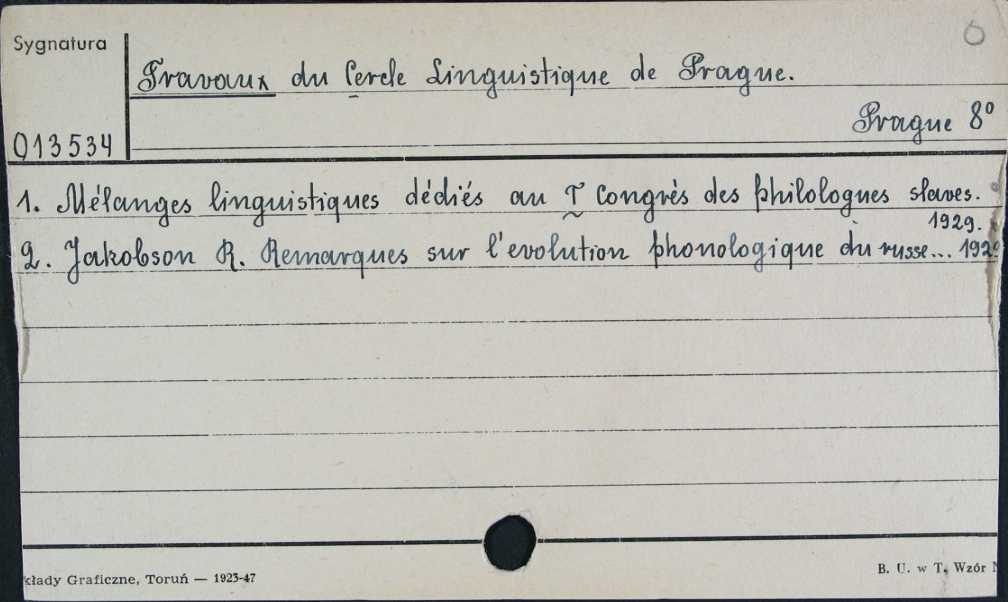 Sygnatura
Travaux du Cercle Linguistique de Prague.
Prague 8°
013534
1. Mélanges linguistiques dédiés au I Congrès des philologues slaves.
1929.
2. Jakobson R. Remarques sur l'evolution phonologique du russe... 192
kłady Graficzne, Toruń — 1923-47
B. U. w T. Wzór